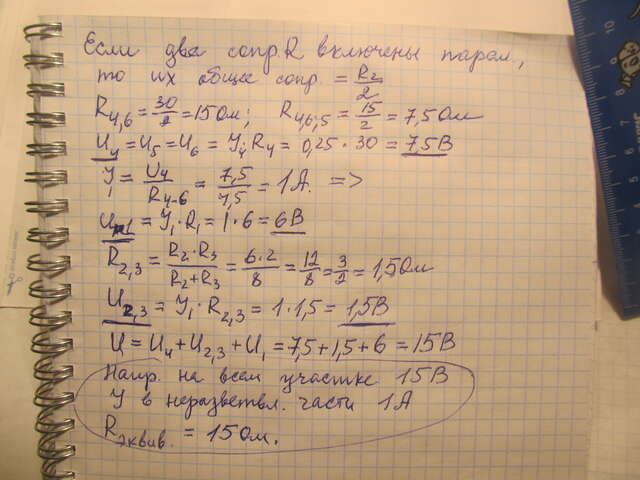 Если два сопр R включены парал.,
то их общее сопр. = R₂/2
R₄,₆ = 30/2 = 15 Ом; R₄,₆,₅ = 15/2 = 7,5 Ом
U₄ = U₅ = U₆ = У₄·R₄ = 0,25 · 30 = 7,5 В
У₁ = U₄/R₄₋₆ = 7,5/7,5 = 1 А. =>
U₁ = У₁·R₁ = 1·6 = 6 В
R₂,₃ = R₂·R₃/R₂+R₃ = 6·2/8 = 12/8 = 3/2 = 1,5 Ом
U₂,₃ = У₁·R₂,₃ = 1·1,5 = 1,5 В
U = U₄ + U₂,₃ + U₁ = 7,5 + 1,5 + 6 = 15 В
Напр. на всем участке 15 В
У в неразветвл. части 1 А
Rэквив. = 15 Ом.